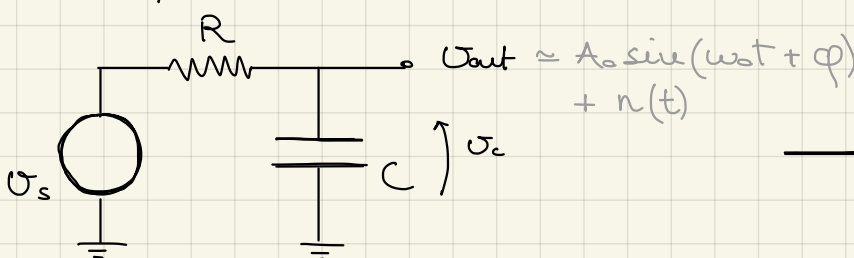 R
v_out ≃ A₀ sin(ω₀t + φ)
+ n(t)
v_s
C
v_c